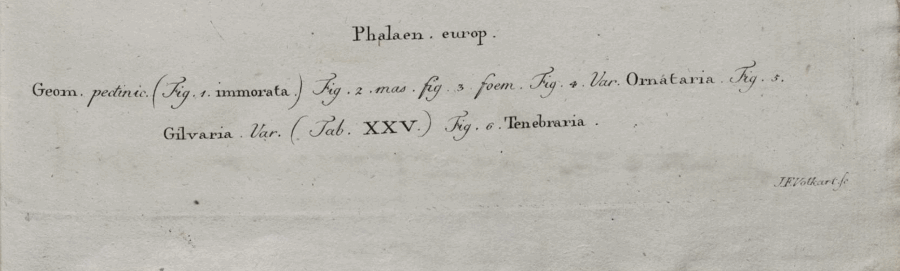 Phalaen . europ .
Geom . pectinic. (Fig . 1 . immorata .) Fig . 2 . mas . fig . 3 . foem . Fig . 4 . Var. Ornátaria . Fig . 5 .
Gilvaria . Var. ( Tab . XXV .) Fig . 6 . Tenebraria .
J.F.Volkart.sc